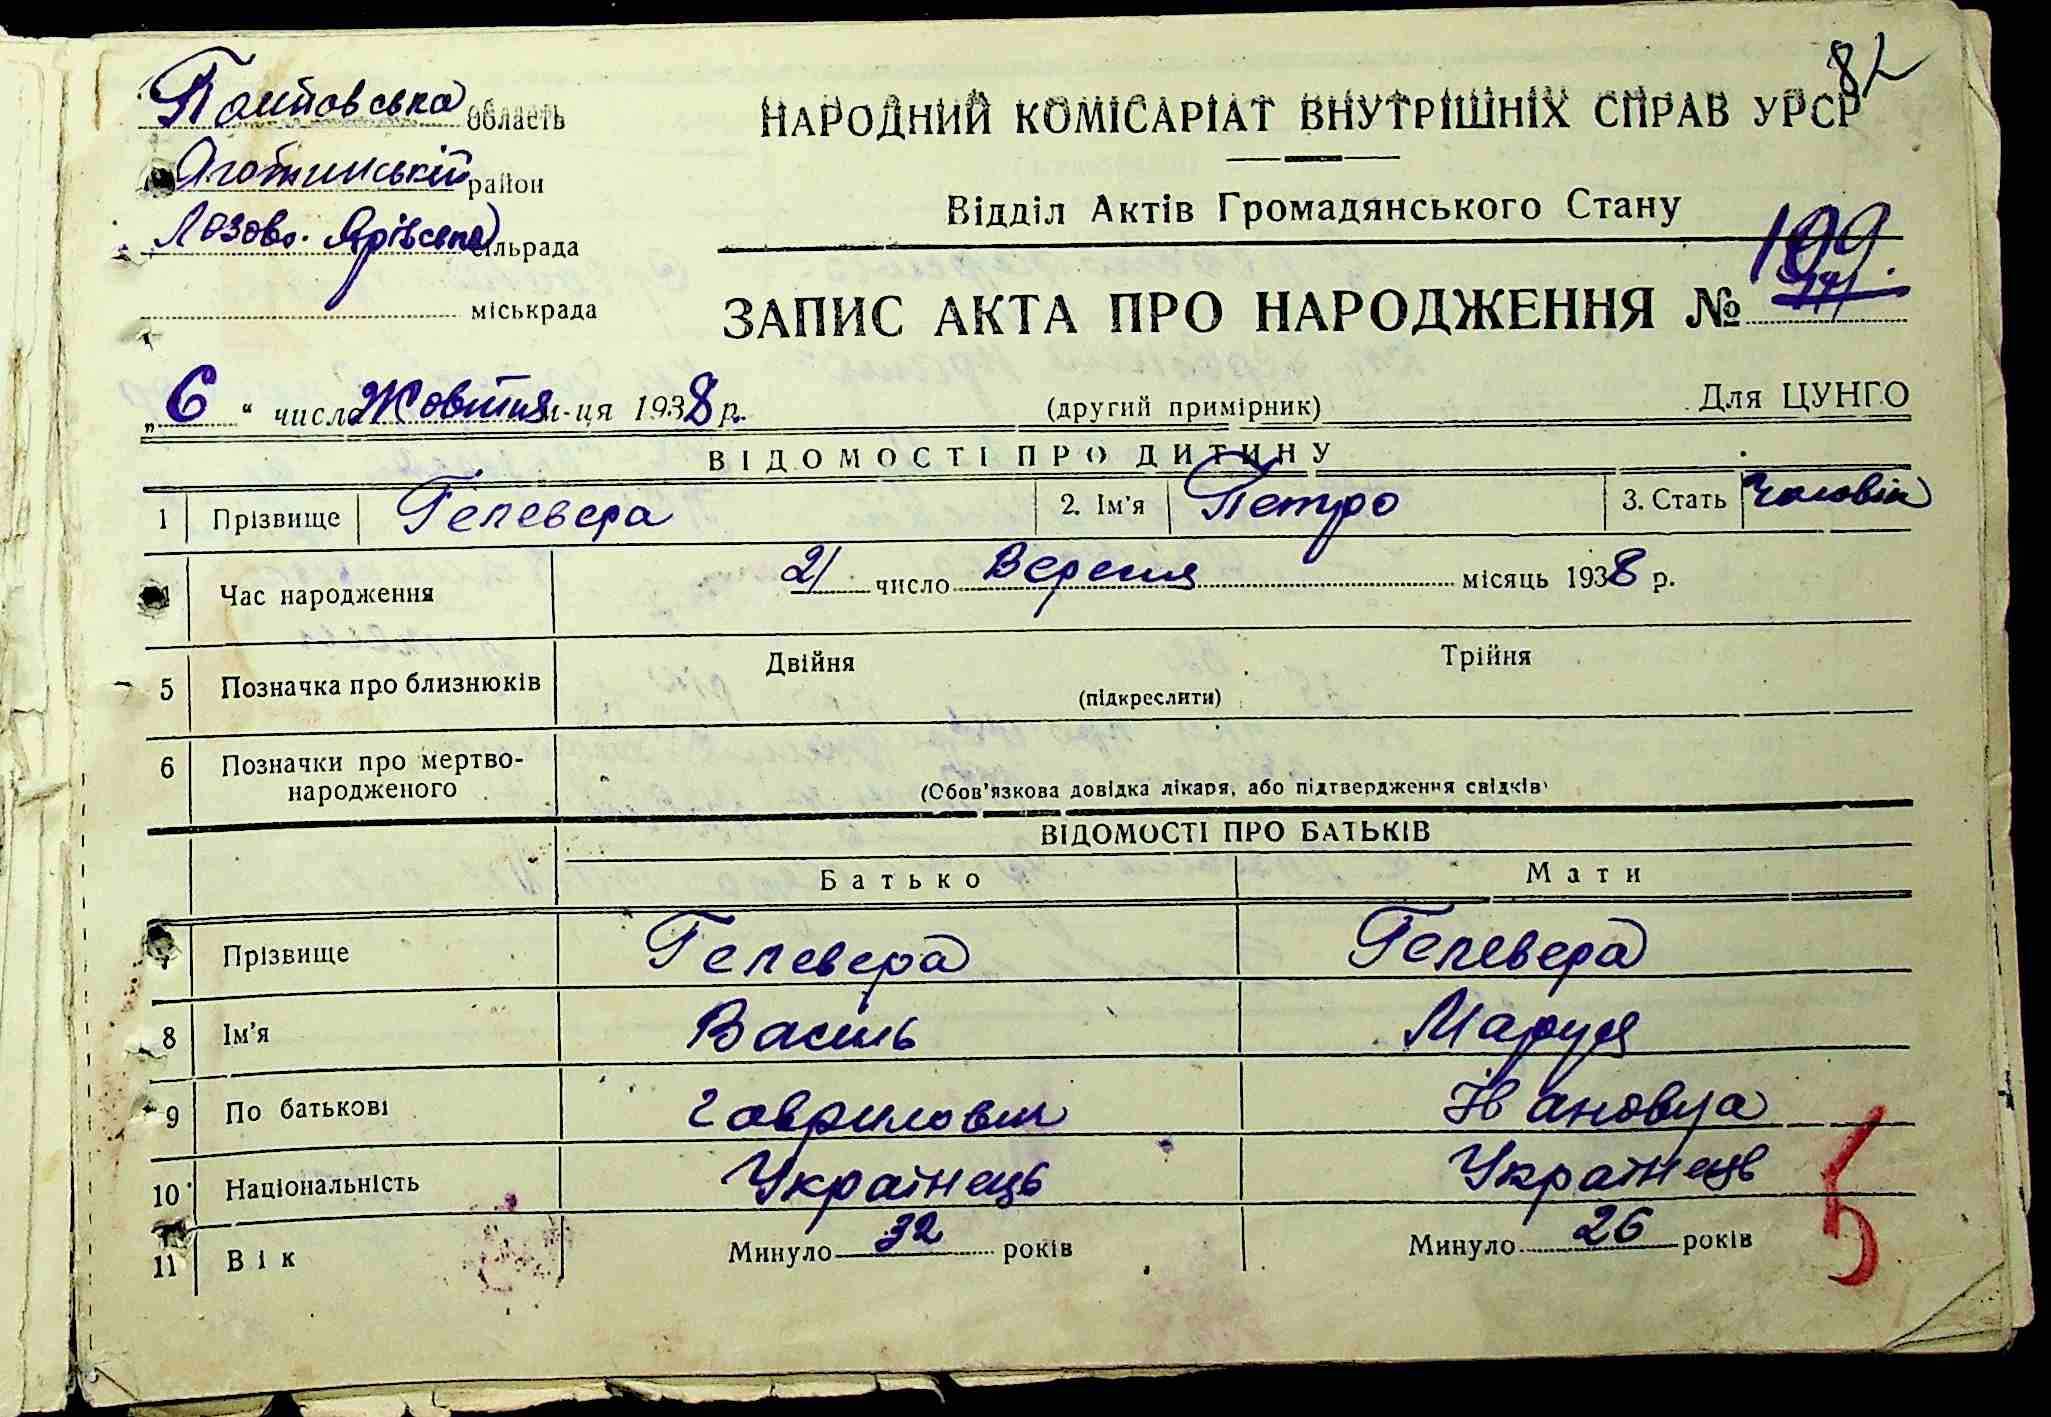 82
Полтовська область
Яготинській район
Лозово-Ярівська сільрада
міськрада
НАРОДНИЙ КОМІСАРІАТ ВНУТРІШНІХ СПРАВ УРСР
Відділ Актів Громадянського Стану
ЗАПИС АКТА ПРО НАРОДЖЕННЯ № 199
„ 6 “ число Жовтня м-ця 1938 р.
(другий примірник)
Для ЦУНГО
ВІДОМОСТІ ПРО ДИТИНУ
1 Прізвище Гелевера 2. Ім'я Петро 3. Стать Чоловік
4 Час народження 21 число Вересня місяць 1938 р.
5 Позначка про близнюків Двійня Трійня
(підкреслити)
6 Позначки про мертво-
народженого
(Обов'язкова довідка лікаря, або підтвердження свідків)
ВІДОМОСТІ ПРО БАТЬКІВ
Батько Мати
7 Прізвище Гелевера Гелевера
8 Ім'я Василь Маруся
9 По батькові Гаврилович Івановна
10 Національність Українець Українець
11 Вік Минуло 32 років Минуло 26 років
5